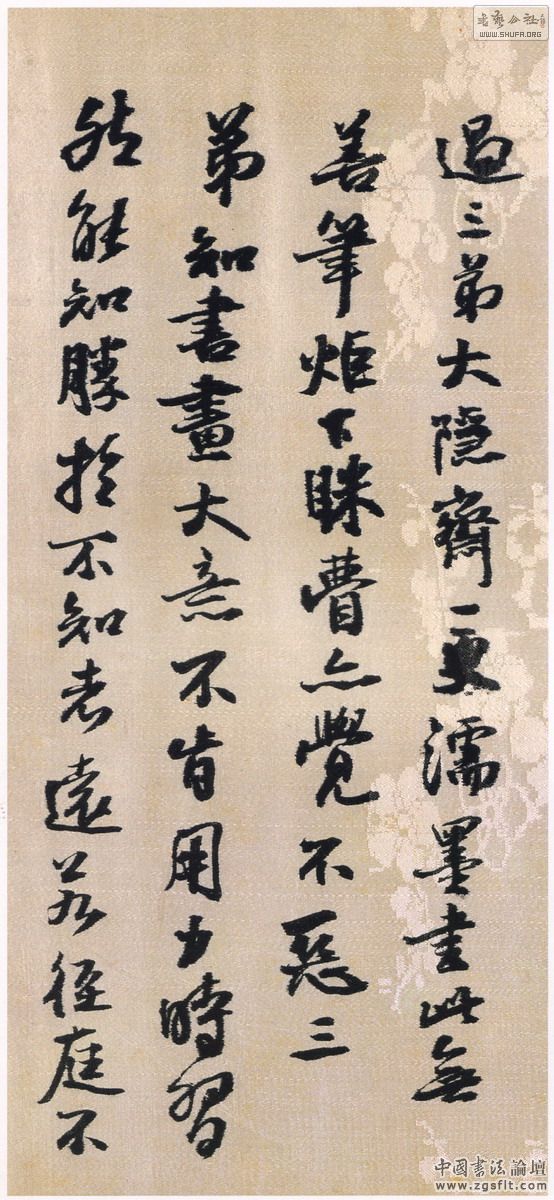 過三弟大隱齋一更濡墨書此無
善筆炬下眯瞢亦覺不惡三
弟知書畫大意不肯用力時習
然能知勝於不知者遠若徑庭不
書藝公社
WWW.SHUFA.ORG
中國書法論壇
www.zgsflt.com